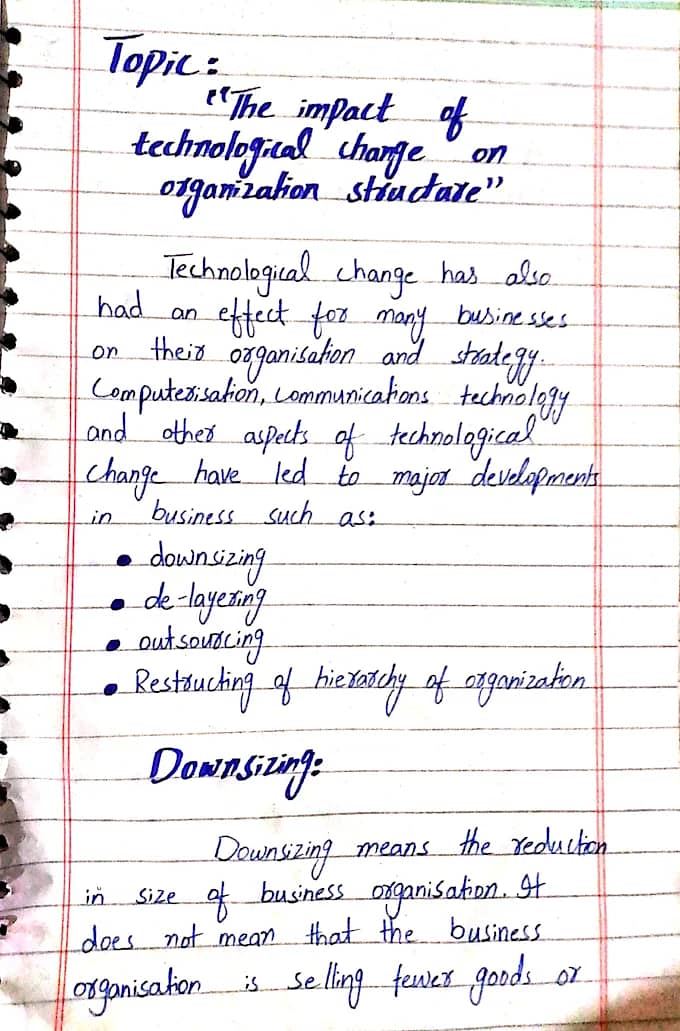 Topic:
"The impact of
technological change on
organization structure"
Technological change has also
had an effect for many businesses
on their organisation and strategy.
Computerisation, communications technology
and other aspects of technological
change have led to major developments
in business such as:
• downsizing
• de-layering
• outsourcing
• Restructing of hierarchy of organization
Downsizing:
Downsizing means the reduction
in size of business organisation. It
does not mean that the business
organisation is selling fewer goods or